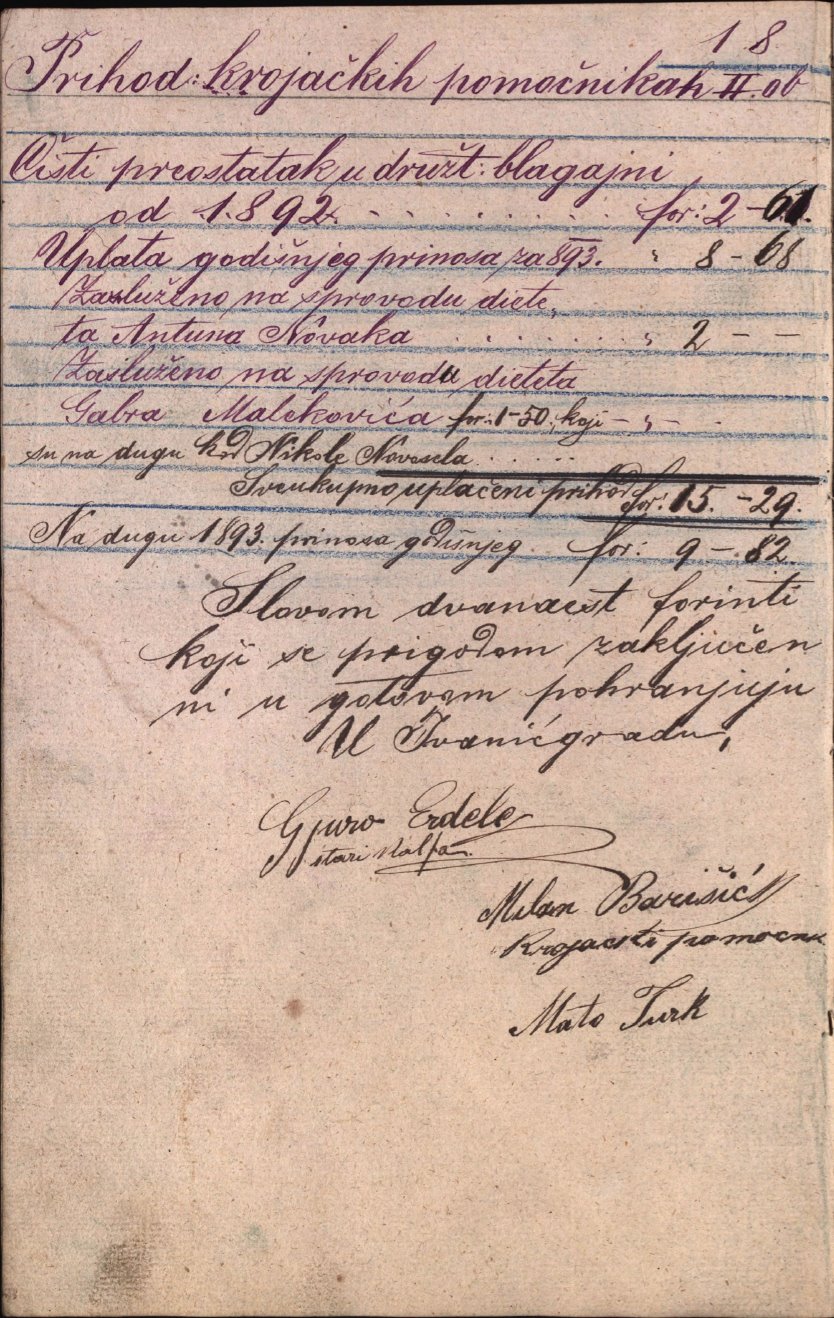 1 8
Prihod: krojačkih pomoćnikah II. ob
Čisti preostatak u družt: blagajni
od 1892. . . . . . . . . for: 2 - 61.
Uplata godišnjeg prinosa za 893. " 8 - 68
Zasluženo na sprovodu diete,
ta Antuna Novaka . . . . . . . " 2 - -
Zasluženo na sprovodu dieteta
Gabra Malekovića for: 1-50, koji - " -
su na dugu kod Nikole Novosela . . . . .
Sveukupno uplaćeni prihod for: 15. - 29.
Na dugu 1893. prinosa godišnjeg for: 9 - 82.
Slovom dvanaest forinti
koji se prigodom zaključen
ni u gotovom pohranjuju
U Ivanićgradu,
Gjuro Erdele
stari kalfa
Milan Barišić
Krojački pomoćn
Mato Turk